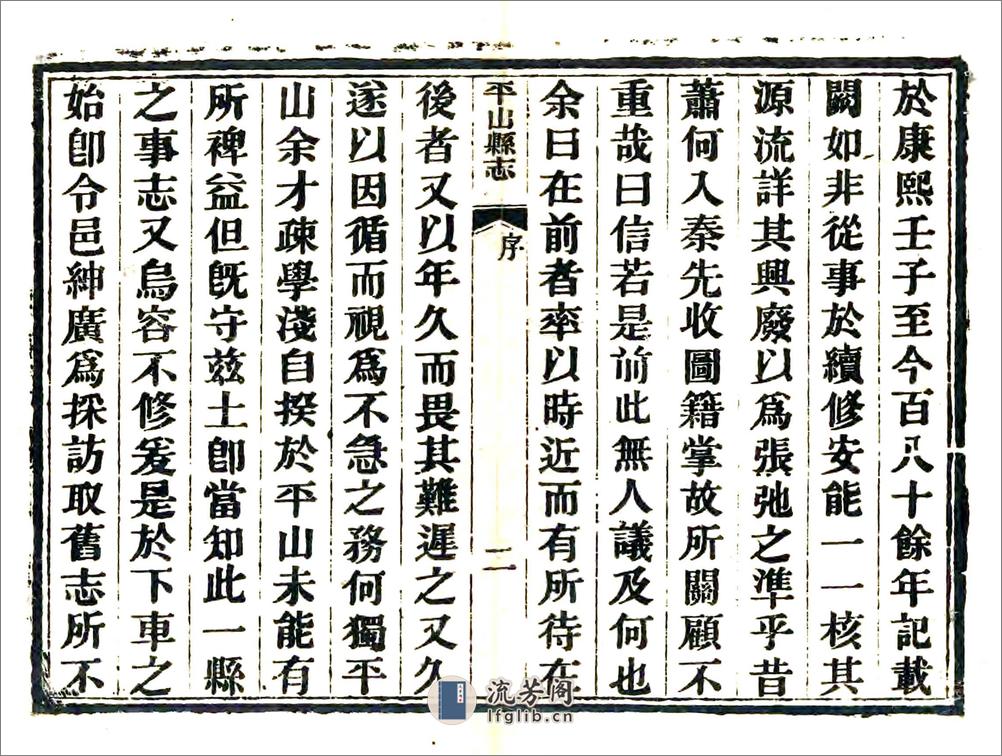 於康熙壬子至今百八十餘年記載
闕如非從事於續修安能一一核其
源流詳其興廢以爲張弛之準乎昔
蕭何入秦先收圖籍掌故所關顧不
重哉曰信若是前此無人議及何也
余曰在前者率以時近而有所待在
平山縣志
序
二
後者又以年久而畏其難遲之又久
遂以因循而視爲不急之務何獨平
山余才疎學淺自揆於平山未能有
所裨益但旣守兹土卽當知此一縣
之事志又烏容不修爰是於下車之
始卽令邑紳廣爲採訪取舊志所不
流芳阁
lfglib.cn